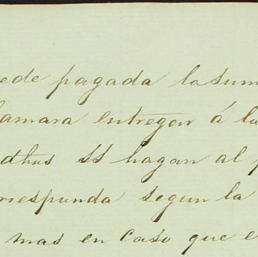 ede pagada la sum
amara entregar á la
dhus SS hagan al p
rresponda segun la
mas en caso que e